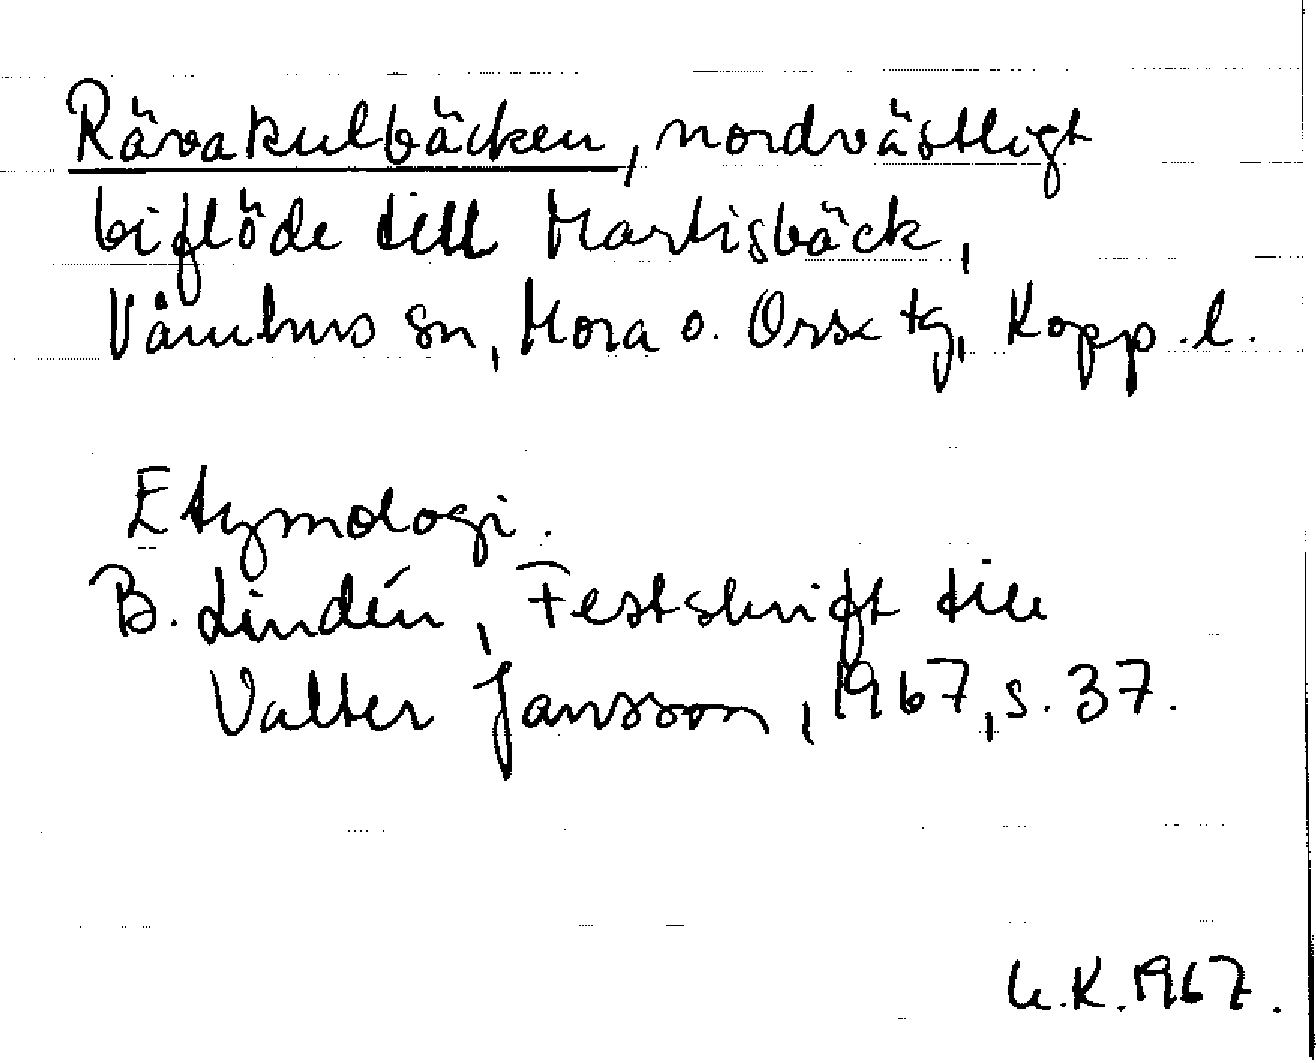 Rävakulbäcken, nordvästligt
biflöde till Martisbäck,
Våmhus sn, Mora o. Orsa tg, Kopp.l.
Etymologi.
B. Lindén, Festskrift till
Valter Jansson, 1967, s. 37.
K. 1967.